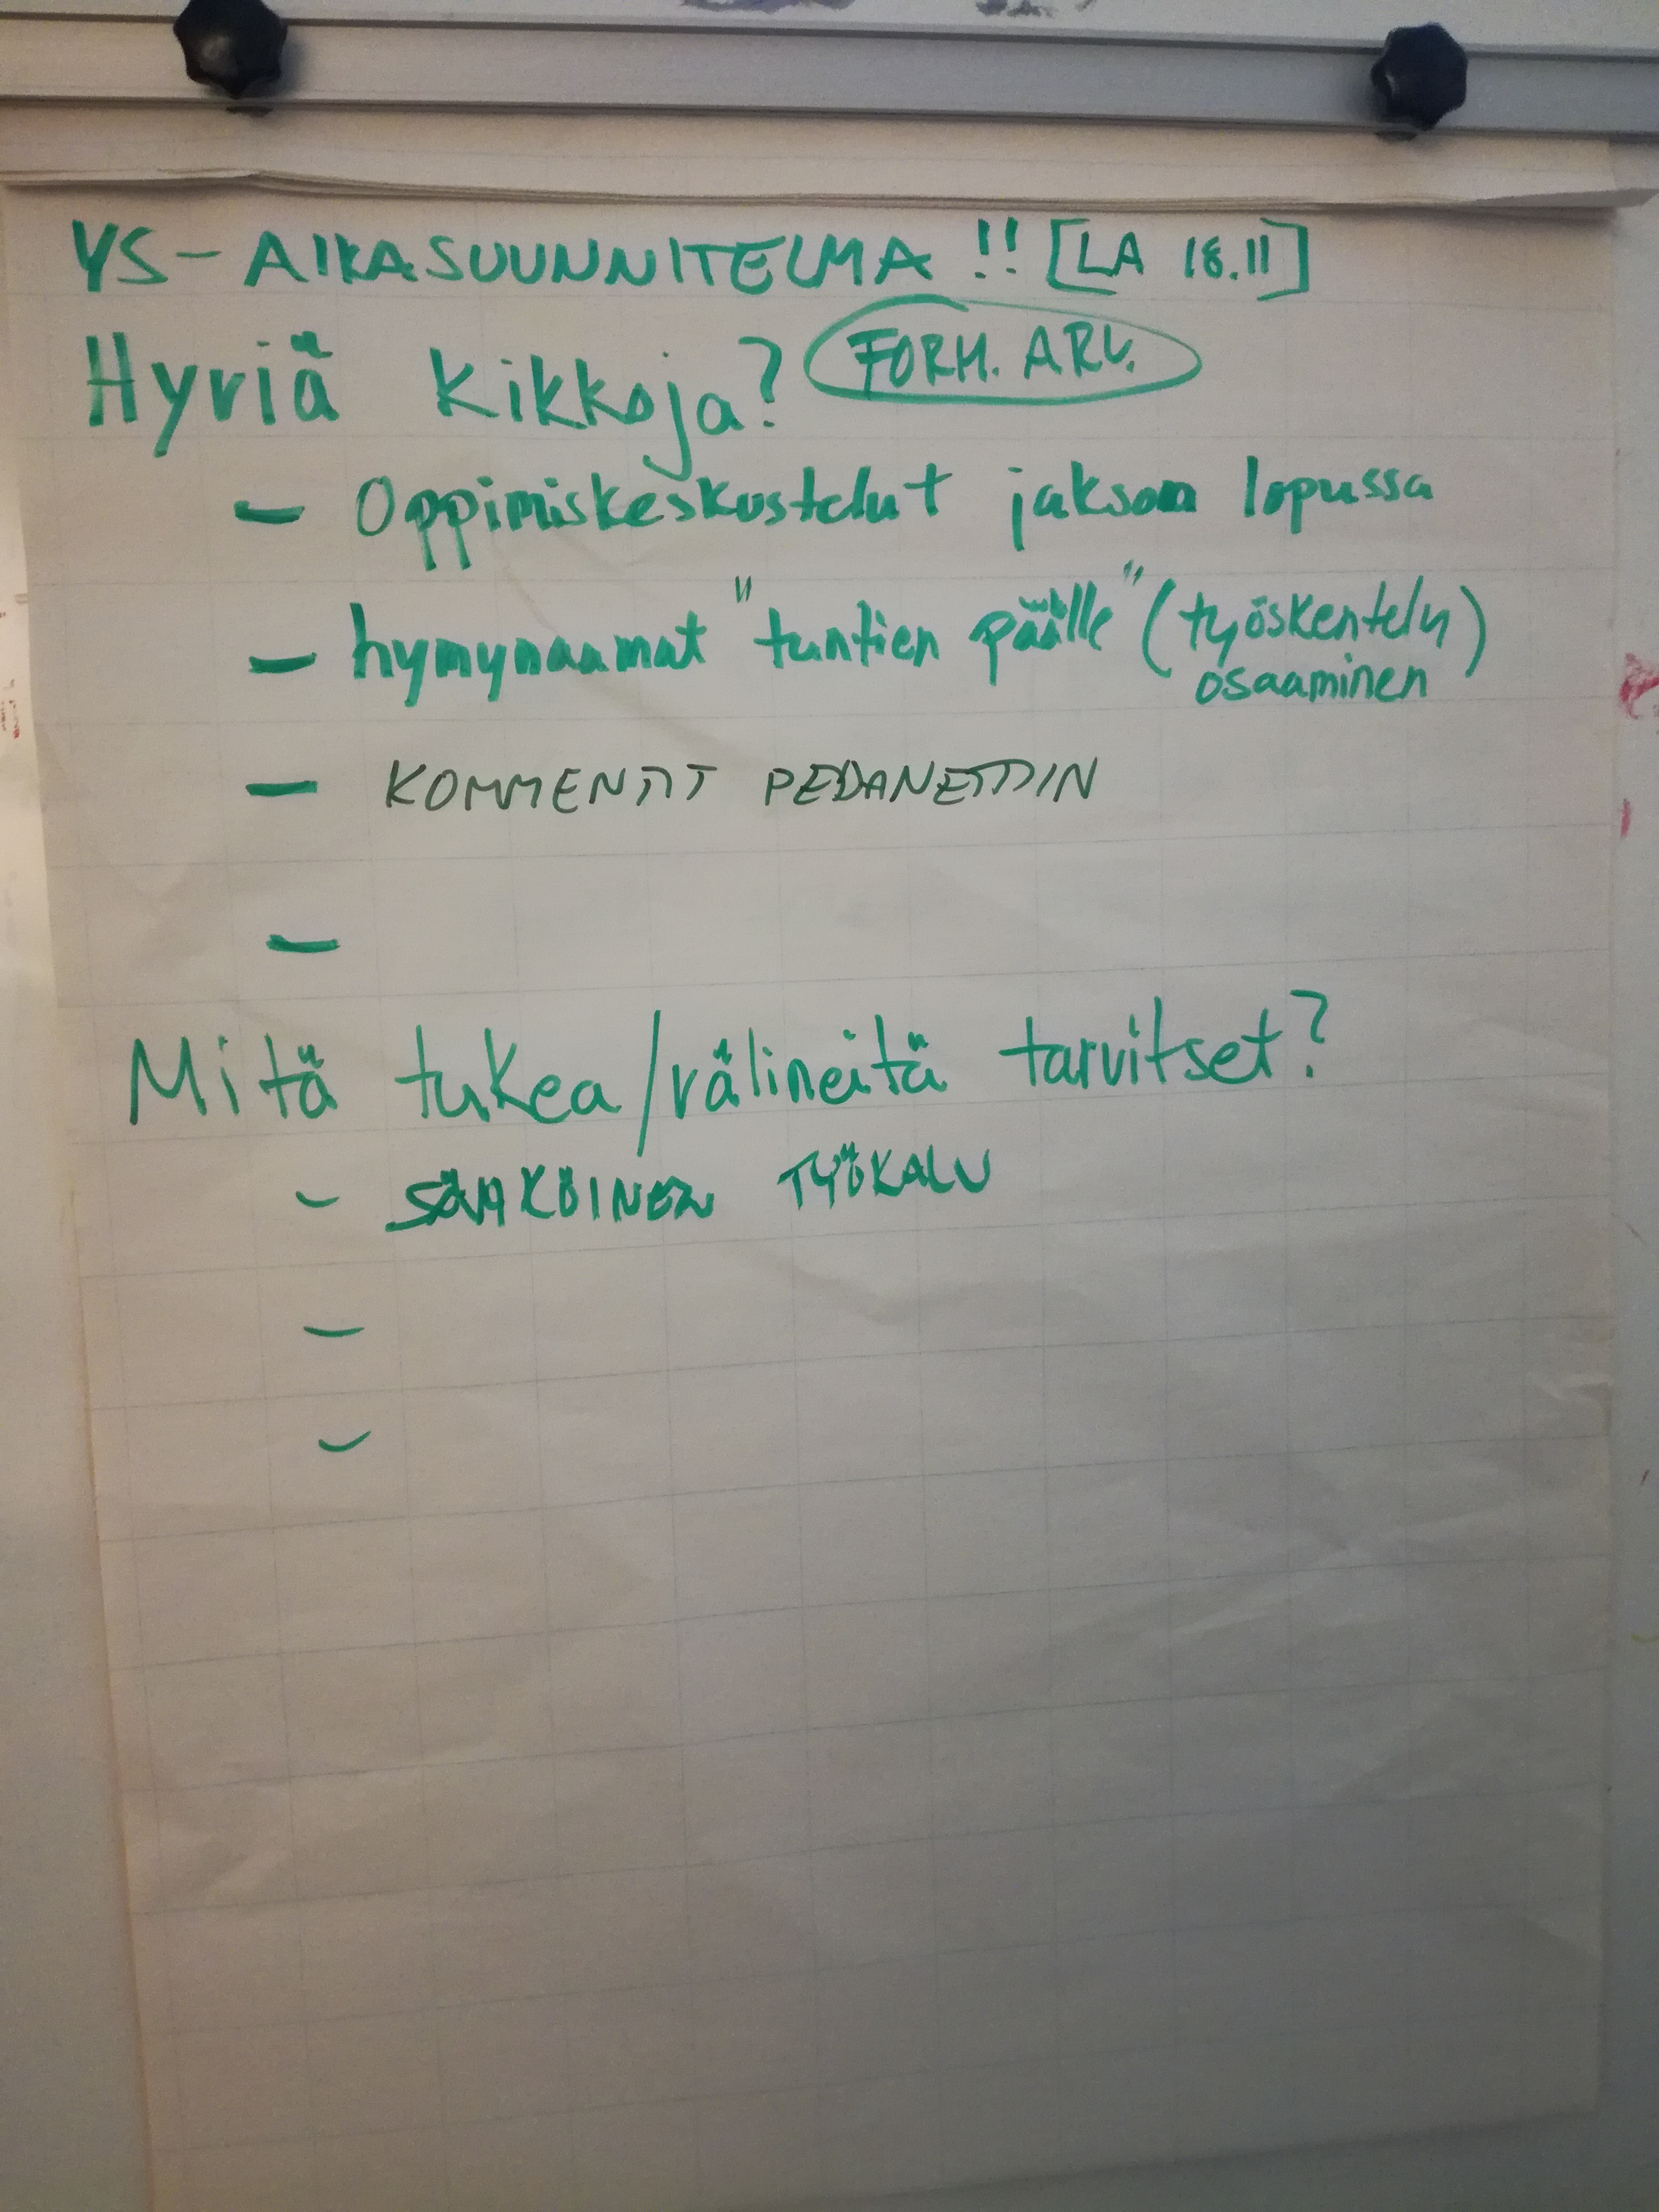 YS - AIKASUUNNITELMA !! [LA 18.11]
Hyviä kikkoja? FORM. ARV.
- Oppimiskeskustelut jakson lopussa
- hymynaamat "tuntien päälle" (työskentely
osaaminen)
- KOMMENTIT PEDANETTIIN
-
Mitä tukea/välineitä tarvitset?
- SÄHKÖINEN TYÖKALU
-
-